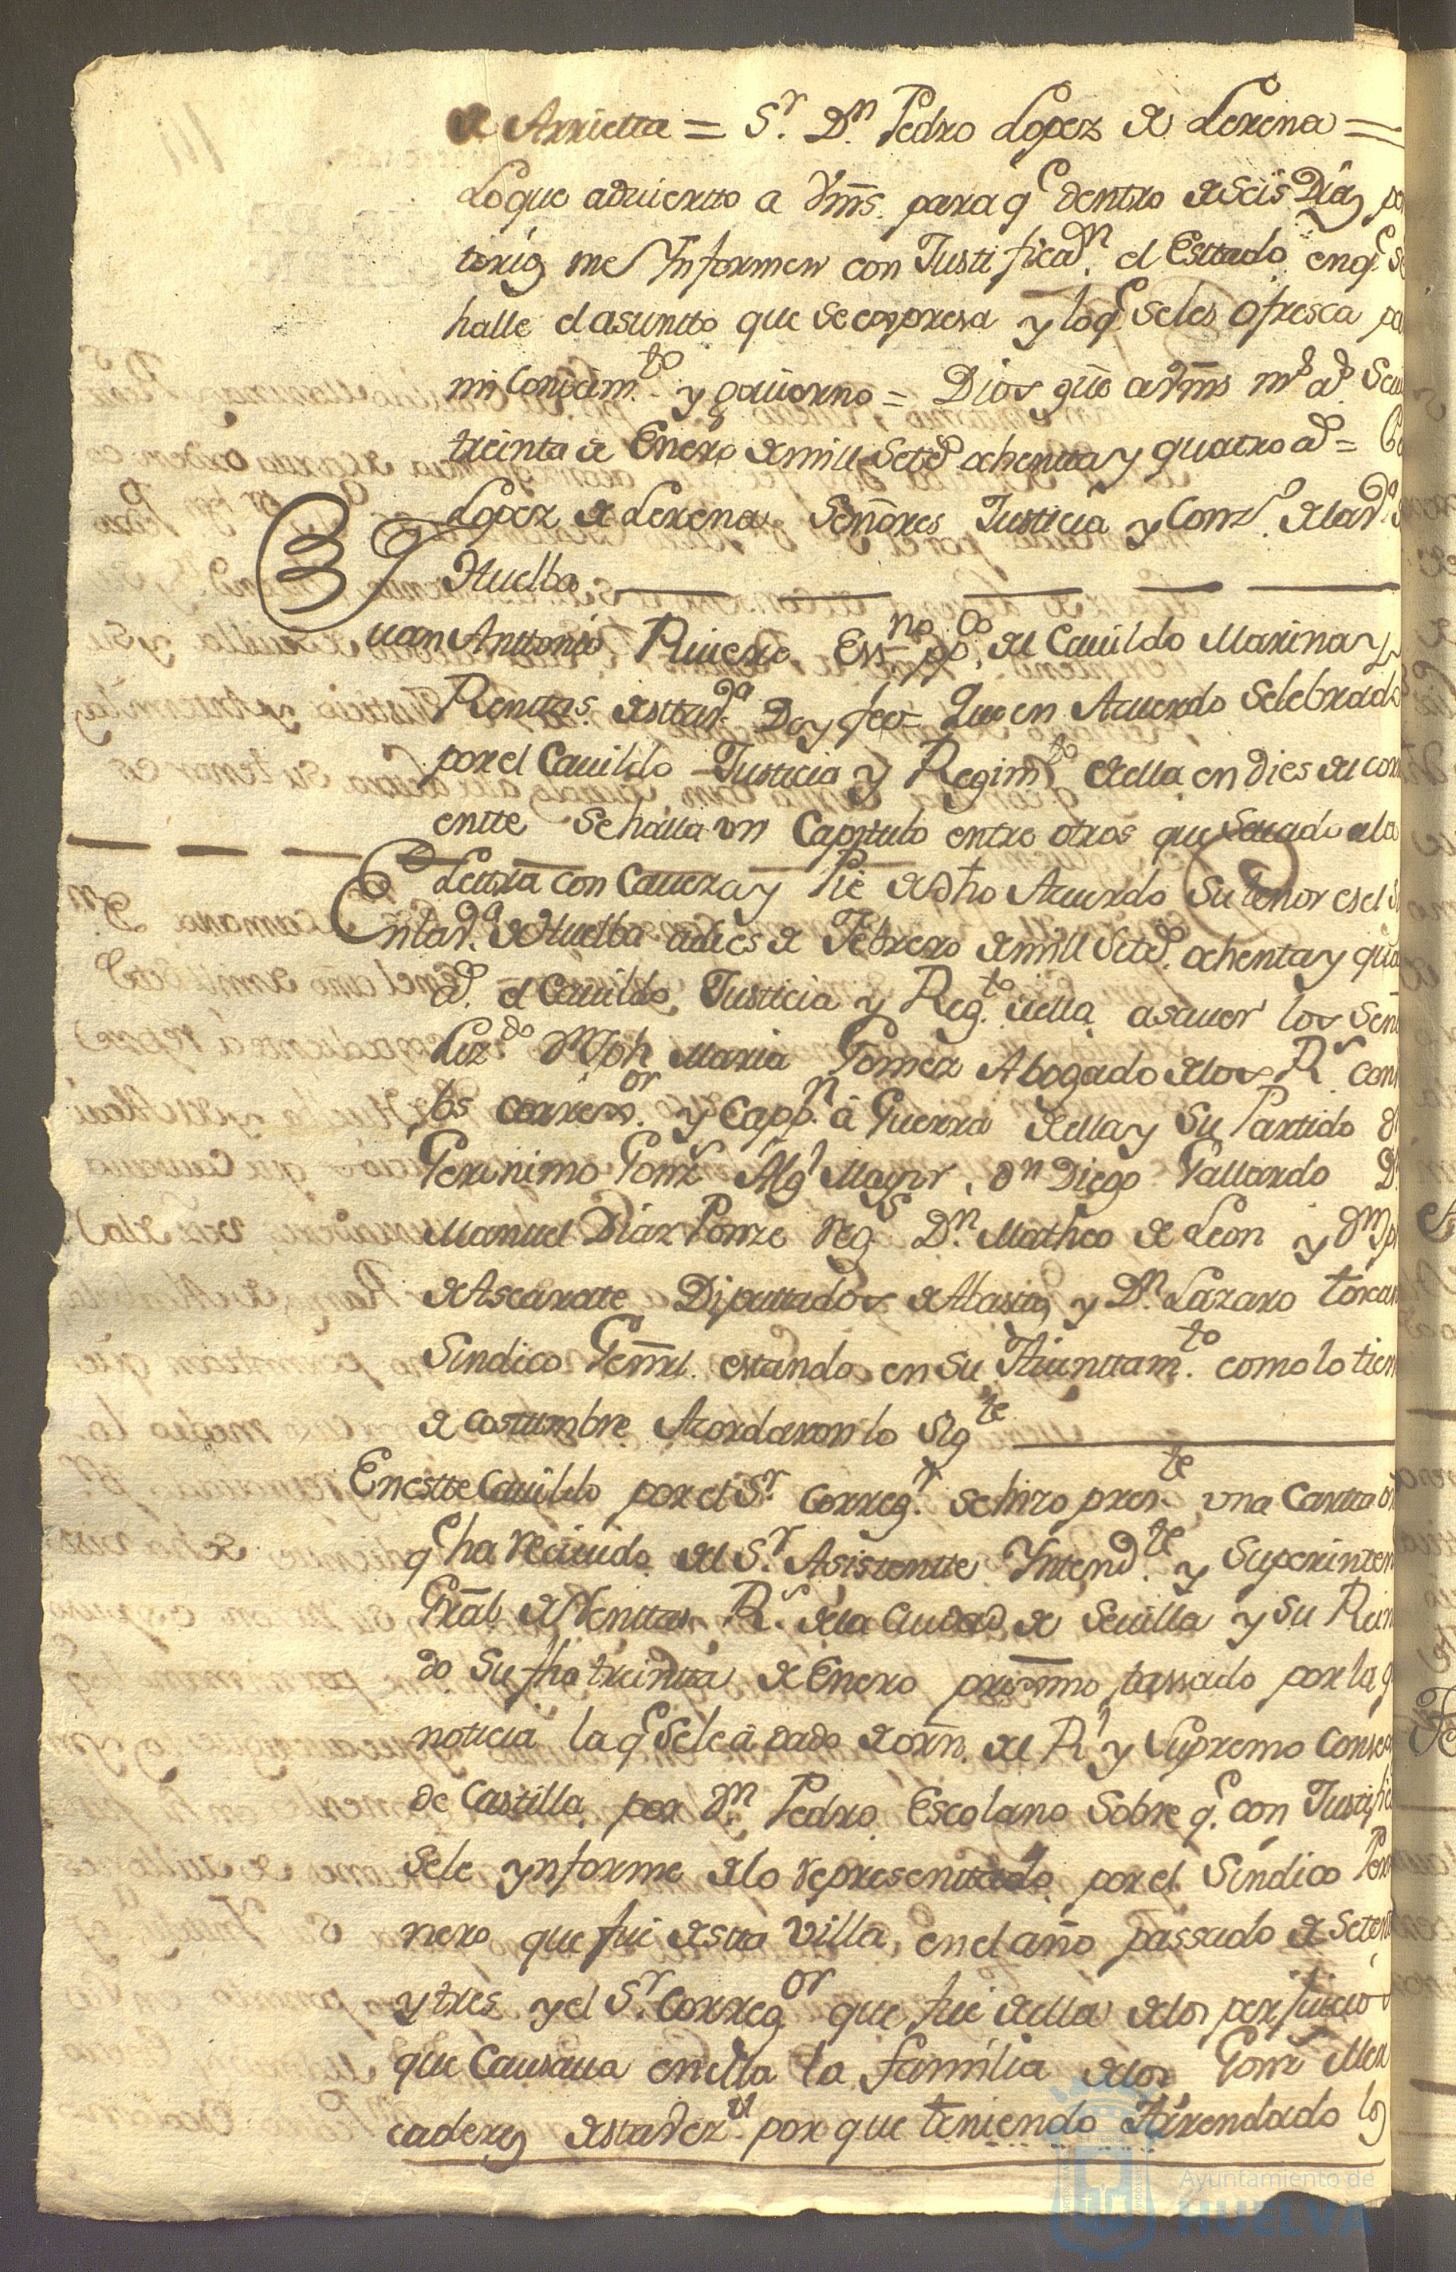 de Arrietta = S.r D.n Pedro Lopez de Lerena =
Loque advierto a Vms. para q.e dentro de seis Dias pe
torios me Ynformen con Justificaz.n el Esttado enq.e se
halle el asuntto que se expresa y loq.e seles ofresca pa
mi Conosim.to y govierno = Dios gûe a Vms m.s a.s Sevi
treinta de Enero de mill Setez.s ochenta y quatro a.s = Pe
Lopez de Lerena Señores Justicia y Conz.o de la v.a d
Huelba
Juan Anttonio Rivero Ess.no pp.co del Cavildo Marina y
Renttas de estta v.a Doy fee = Que en Acuerdo Selebrado
por el Cavildo Justicia y Regim.to de ella en dies del corri
entte se halla un Capitulo entre otros que sacado a la
Lettra con Caveza y Pie de dho Acuerdo su tenor es el si
En la v.a de Huelba a dies de Febrero de mill Setez.s ochenta y qua
a.s el Cavildo Justicia y Reg.to de ella asaver los Señ
Liz.do D.n Joh Maria Gomez Abogado de los R.s Cons
tos correxr.or y Capp.n â Guerra de ella y su Partido D
Geronimo Gomz Alg.l Mayor, D.n Diego Gallardo D
Manuel Diaz Ponze Reg.s D.n Matheo de Leon y D.n Jp
de Ascarate Diputtados de Abastos y D.n Lazaro torca
Sindico Genrl. estando en su Aiunttam.to como lo tien
de costumbre Acordaron lo Sig.te
En estte Cavildo por el S.r Correg.r se hizo pres.te una Cartta or
q.e ha recivido del S.r Asistentte Yntend.te y Superinten
Grâl de Renttas R.s de la Ciudad de Sevilla y su Rein
do su fha treintta de Enero proximo passado por la q
noticia la q.e se le â dado de orn. del R.l y Supremo Conse
de Castilla por D.n Pedro Escolano Sobre q.e con Justific
sele ynforme de lo representtado por el Sindico Per
nero que fue de estta Villa, en el año passado de Setent
y tres y el S.r Correg.or que fue de ella de los perjuicio
que Causava en ella la familia de los Gomz Mer
caderes de esta vez.d por que teniendo Arrendado los
Ayuntamiento de
HUELVA